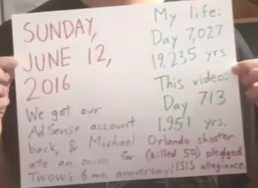 SUNDAY,
JUNE 12,
2016
My life:
Day 7,027
19.235 yrs.
This video:
Day 713
1.951 yrs.
We got our
AdSense account
back, & Michael
ate an onion for
Twow's 6 mo. anniversary!
Orlando shooter
(killed 50) pledged
ISIS allegiance.